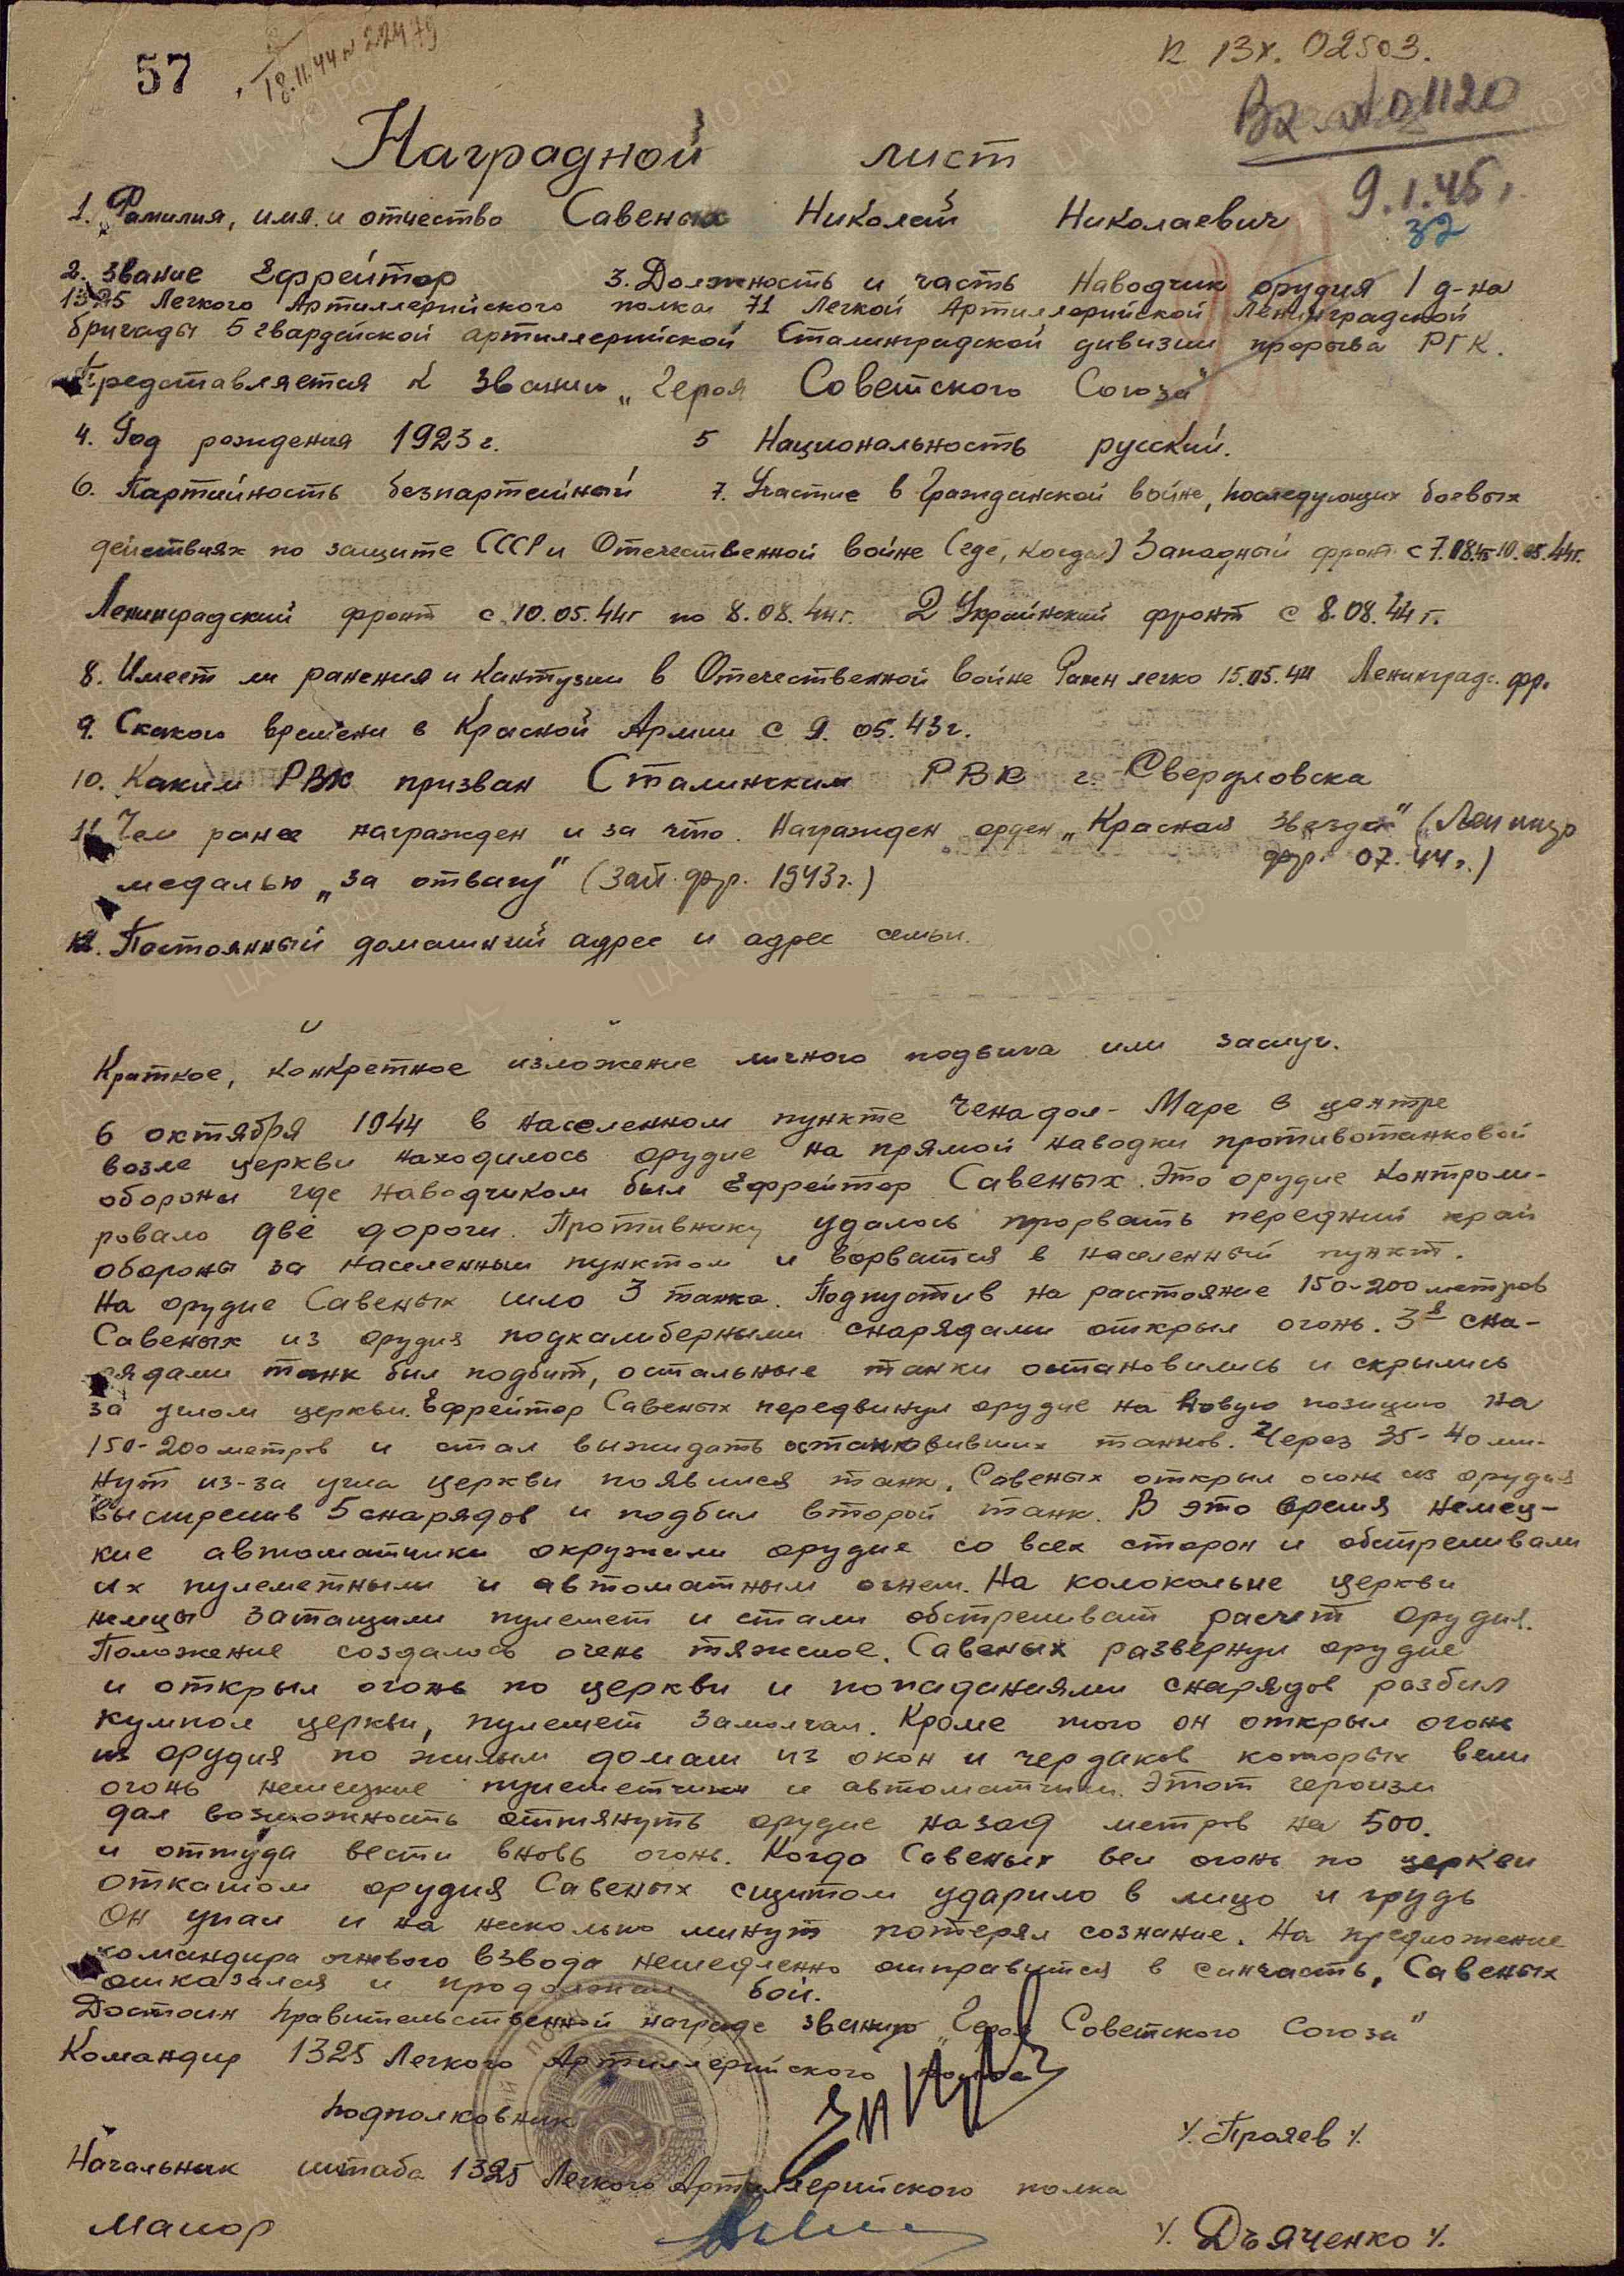 57
18.11.44 г 22479
п 13х. 02503.
Вх. №01120
9.1.45г
32
Наградной лист
1. Фамилия, имя и отчество Савеных Николай Николаевич
2. Звание Ефрейтор 3. Должность и часть Наводчик орудия 1 д-на
1325 Легкого Артиллерийского полка 71 Легкой Артиллерийской Ленинградской
бригады 5 гвардейской артиллерийской Сталинградской дивизии прорыва РГК.
Представляется к званию „Героя Советского Союза"
4. Год рождения 1923 г. 5 Национальность русский.
6. Партийность безпартейный 7. Участие в Гражданской войне, последующих боевых
действиях по защите СССР и Отечественной войне (где, когда) Западный фронт с 7.08. 10.05.44г.
Ленинградский фронт с 10.05.44г по 8.08.44г. 2 Украинский фронт с 8.08.44 г.
8. Имеет ли ранения и Контузии в Отечественной войне Ранен легко 15.05.44 Ленинградс. фр.
9. Скакого времени в Красной Армии с 9. 05.43г.
10. Каким РВК призван Сталинским РВК г. Свердловска
11 Чем ранее награжден и за что. Награжден орден „Красная звезда" (Ленингр
фр. 07.44г.)
медалью „за отвагу" (Зап. фр. 1943г.)
12. Постоянный домашний адрес и адрес семьи.
Краткое, конкретное изложение личного подвига или заслуг.
6 октября 1944 в населенном пункте Ченадол-Маре в центре
возле церкви находилось орудие на прямой наводки противотанковой
обороны где наводчиком был Ефрейтор Савеных. Это орудие контроли-
ровало две дороги. Противнику удалось прорвать передний край
обороны за населенным пунктом и ворватся в населенный пункт.
На орудие Савеных шло 3 танка. Подпустив на растояние 150-200 метров
Савеных из орудия подкалиберными снарядами открыл огонь. 3я сна-
рядами танк был подбит, остальные танки остановились и скрылись
за углом церкви. Ефрейтор Савеных передвинул орудие на новую позицию на
150-200 метров и стал выжидать остановивших танков. Через 35-40 ми-
нут из-за угла церкви появился танк. Савеных открыл огонь из орудия
выстрелив 5 снарядов и подбил второй танк. В это время немец-
кие автоматчики окружили орудие со всех сторон и обстреливали
их пулеметным и автоматным огнем. На колокольне церкви
немцы затащили пулемет и стали обстреливат расчет орудия.
Положение создалось очень тяжелое. Савеных развернул орудие
и открыл огонь по церкви и попаданиями снарядов разбил
кумпол церкви, пулемет замолчал. Кроме того он открыл огонь
из орудия по жилым домам из окон и чердаков которых вели
огонь немецкие пулеметчики и автоматчики. Этот героизм
дал возможность оттянуть орудие назад метров на 500.
и оттуда вести вновь огонь. Когда Савеных вел огонь по церкви
откатом орудия Савеных сщитом ударило в лицо и грудь
Он упал и на несколько минут потерял сознание. На предложение
командира огневого взвода немедленно отправится в санчасть, Савеных
отказался и продолжал бой.
Достоин правительственной награде званию „Героя Советского Союза"
Командир 1325 Легкого Артиллерийского полка
подполковник
/. Праяев /.
Начальник штаба 1325 Легкого Артиллерийского полка
Маиор
/. Дъяченко /.